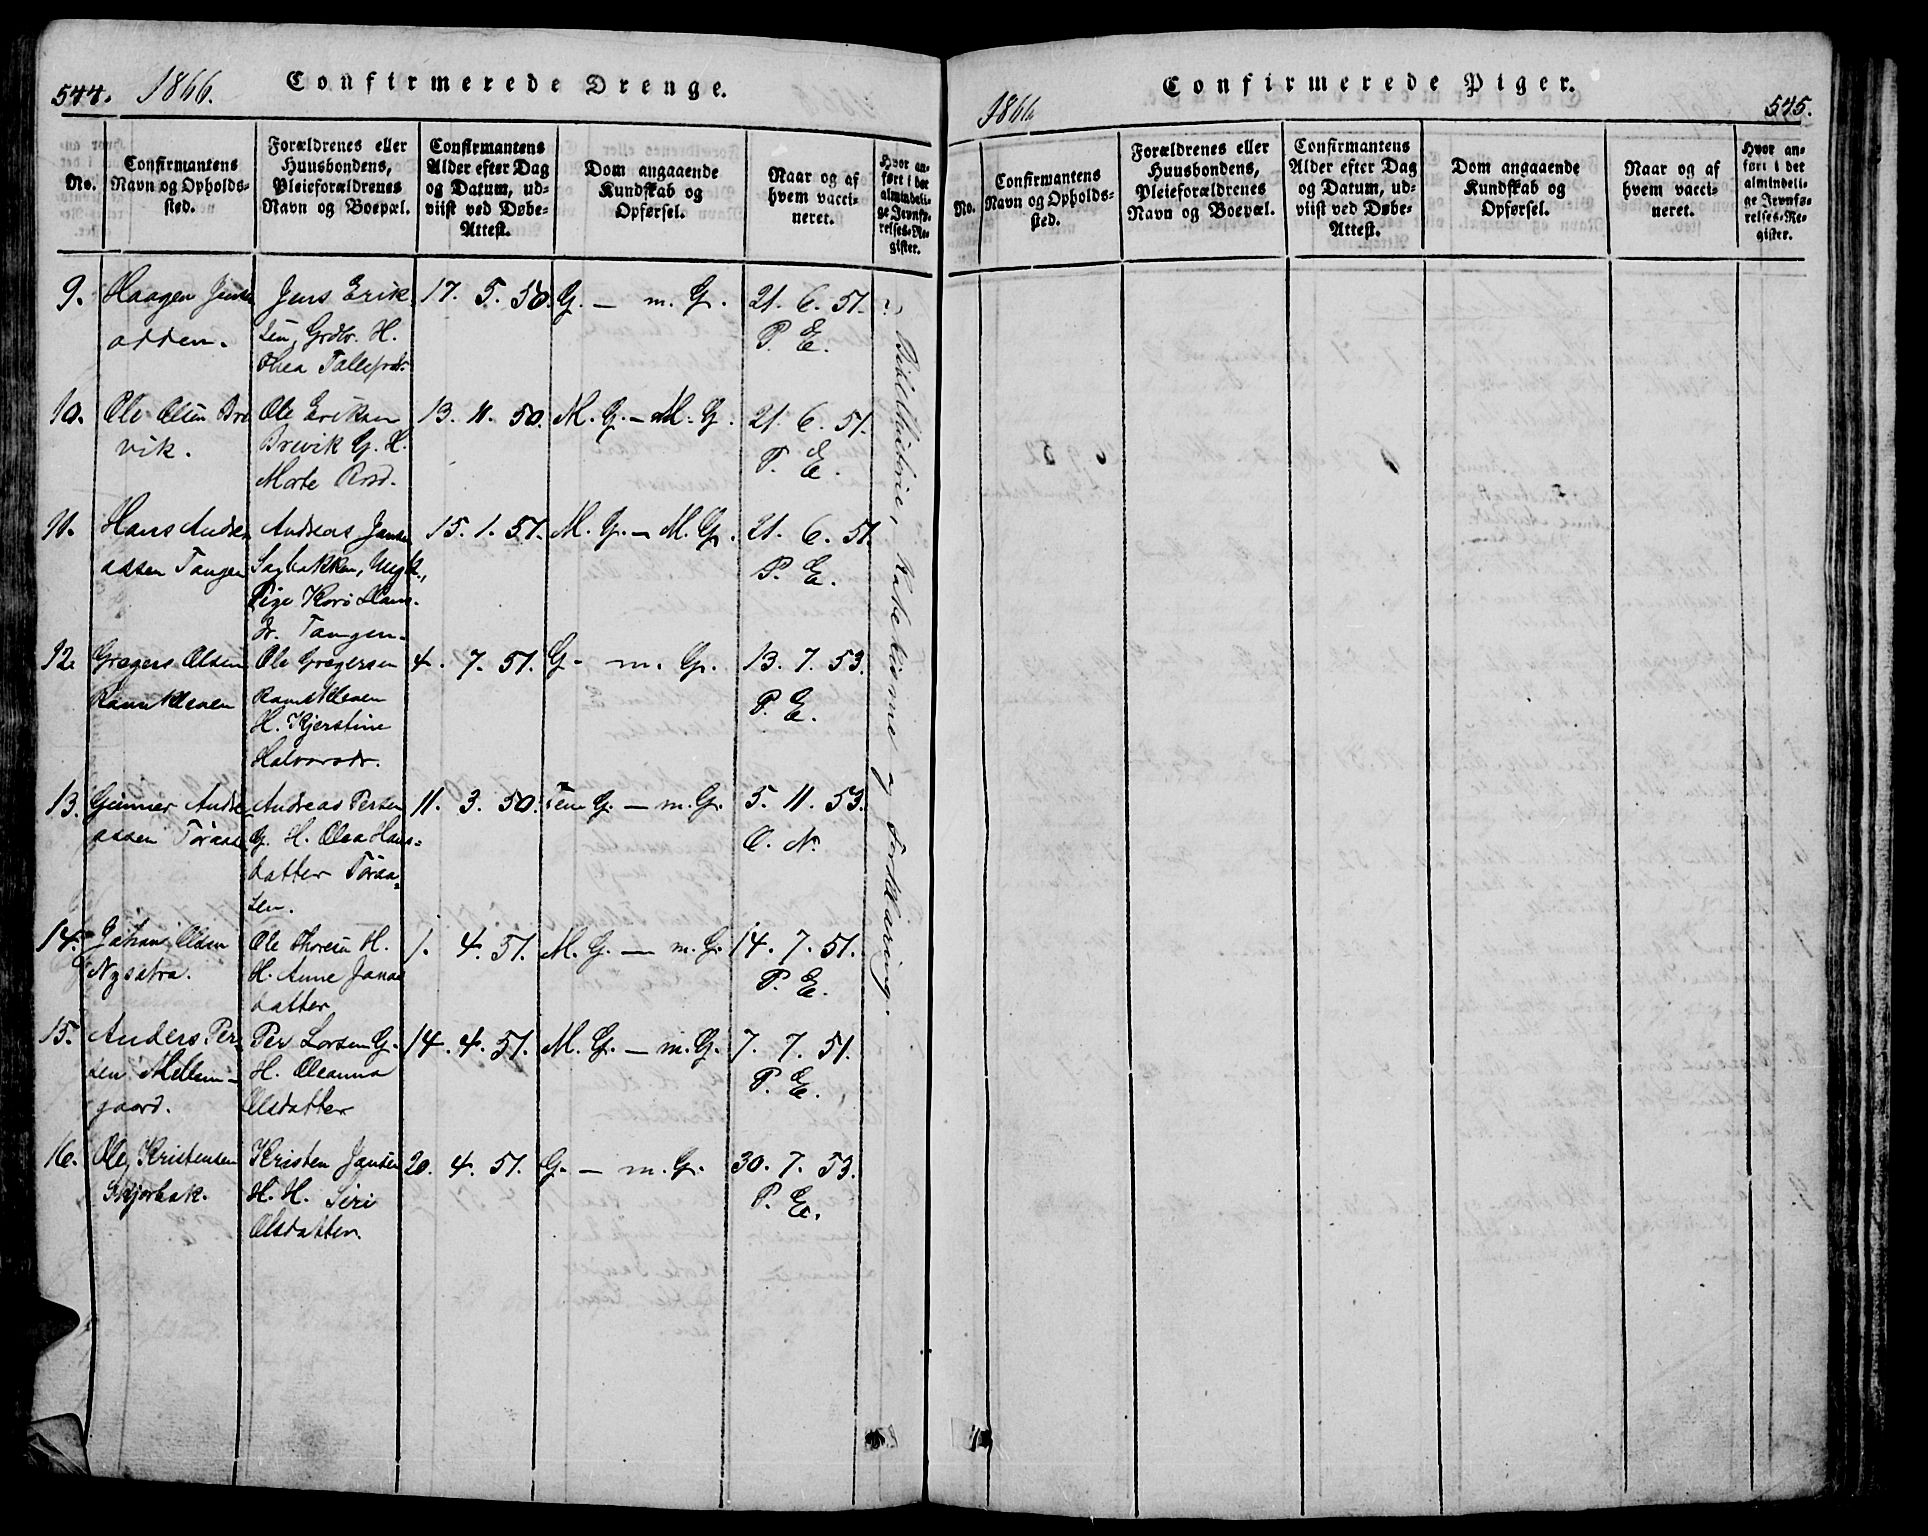 544.
1866.
Confirmerede Drenge.
No.
Confirmantens
Navn og Opholds-
sted.
Forældrenes eller
Huusbondens,
Pleieforældrenes
Navn og Boepæl.
Confirmantens
Alder efter Dag
og Datum, ud-
viist ved Døbe-
Attest.
Dom angaaende
Kundskab og
Opførsel.
Naar og af
hvem vacci-
neret.
Hvor an-
ført i det
almindeli-
ge Jevnfø-
relses-Re-
gister.
9.
Haagen Jens
Jens Erik
sen, Grdbr. H.
Thea Tallefsdr.
17. 5. 50.
G. — m. G.
21. 6. 51.
P. E.
10.
Ole Olsen Bre
vik.
Ole Eriksen
Brevik G. H.
Marte Rasd.
13. 11. 50.
M. G. — M. G.
21. 6. 51.
P. E.
11.
Hans Andre
assen Tangen
Andreas Jansen
Sagbakken, Ungk.,
Pige Kari Hans
dr. Tangen.
15. 1. 51.
M. G. — M. G.
21. 6. 51.
P. E.
12.
Gregers Olsen
Ramskleven
Ole Gregersen
Ramskleven
H. Kjerstine
Halvorsdr.
4. 7. 51.
G. - m. G.
13. 7. 53.
P. E.
13.
Gunner Andre
assen Toraas
Andreas Persen
G. H. Olea Hans-
datter Toraa-
sen.
11. 3. 50.
Tem G. — m. G.
5. 11. 53.
O. N.
14.
Johans Olsen
Nysætra.
Ole Thoresen H.
H. Anne Janas
datter
1. 4. 51.
M. G. — m. G.
14. 7. 51.
P. E.
15.
Anders Per-
sen Mellem-
gaard.
Per Larsen G.
H. Oleanna
Olsdatter
14. 4. 51.
M. G. — m. G.
7. 7. 51.
P. E.
16.
Ole Kristensen
Skjørbak.
Kristen Jansen
H. H. Siri
Olsdatter.
20. 4. 51.
G. — m. G.
30. 7. 53.
P. E.
Bibelhistorie, Katekisme og Forklaring.
1866
Confirmerede Piger.
545.
No.
Confirmantens
Navn og Opholds-
sted.
Forældrenes eller
Huusbondens,
Pleieforældrenes
Navn og Boepæl.
Confirmantens
Alder efter Dag
og Datum, ud-
viist ved Døbe-
Attest.
Dom angaaende
Kundskab og
Opførsel.
Naar og af
hvem vacci-
neret.
Hvor an-
ført i det
almindeli-
ge Jevnfø-
relses-Re-
gister.